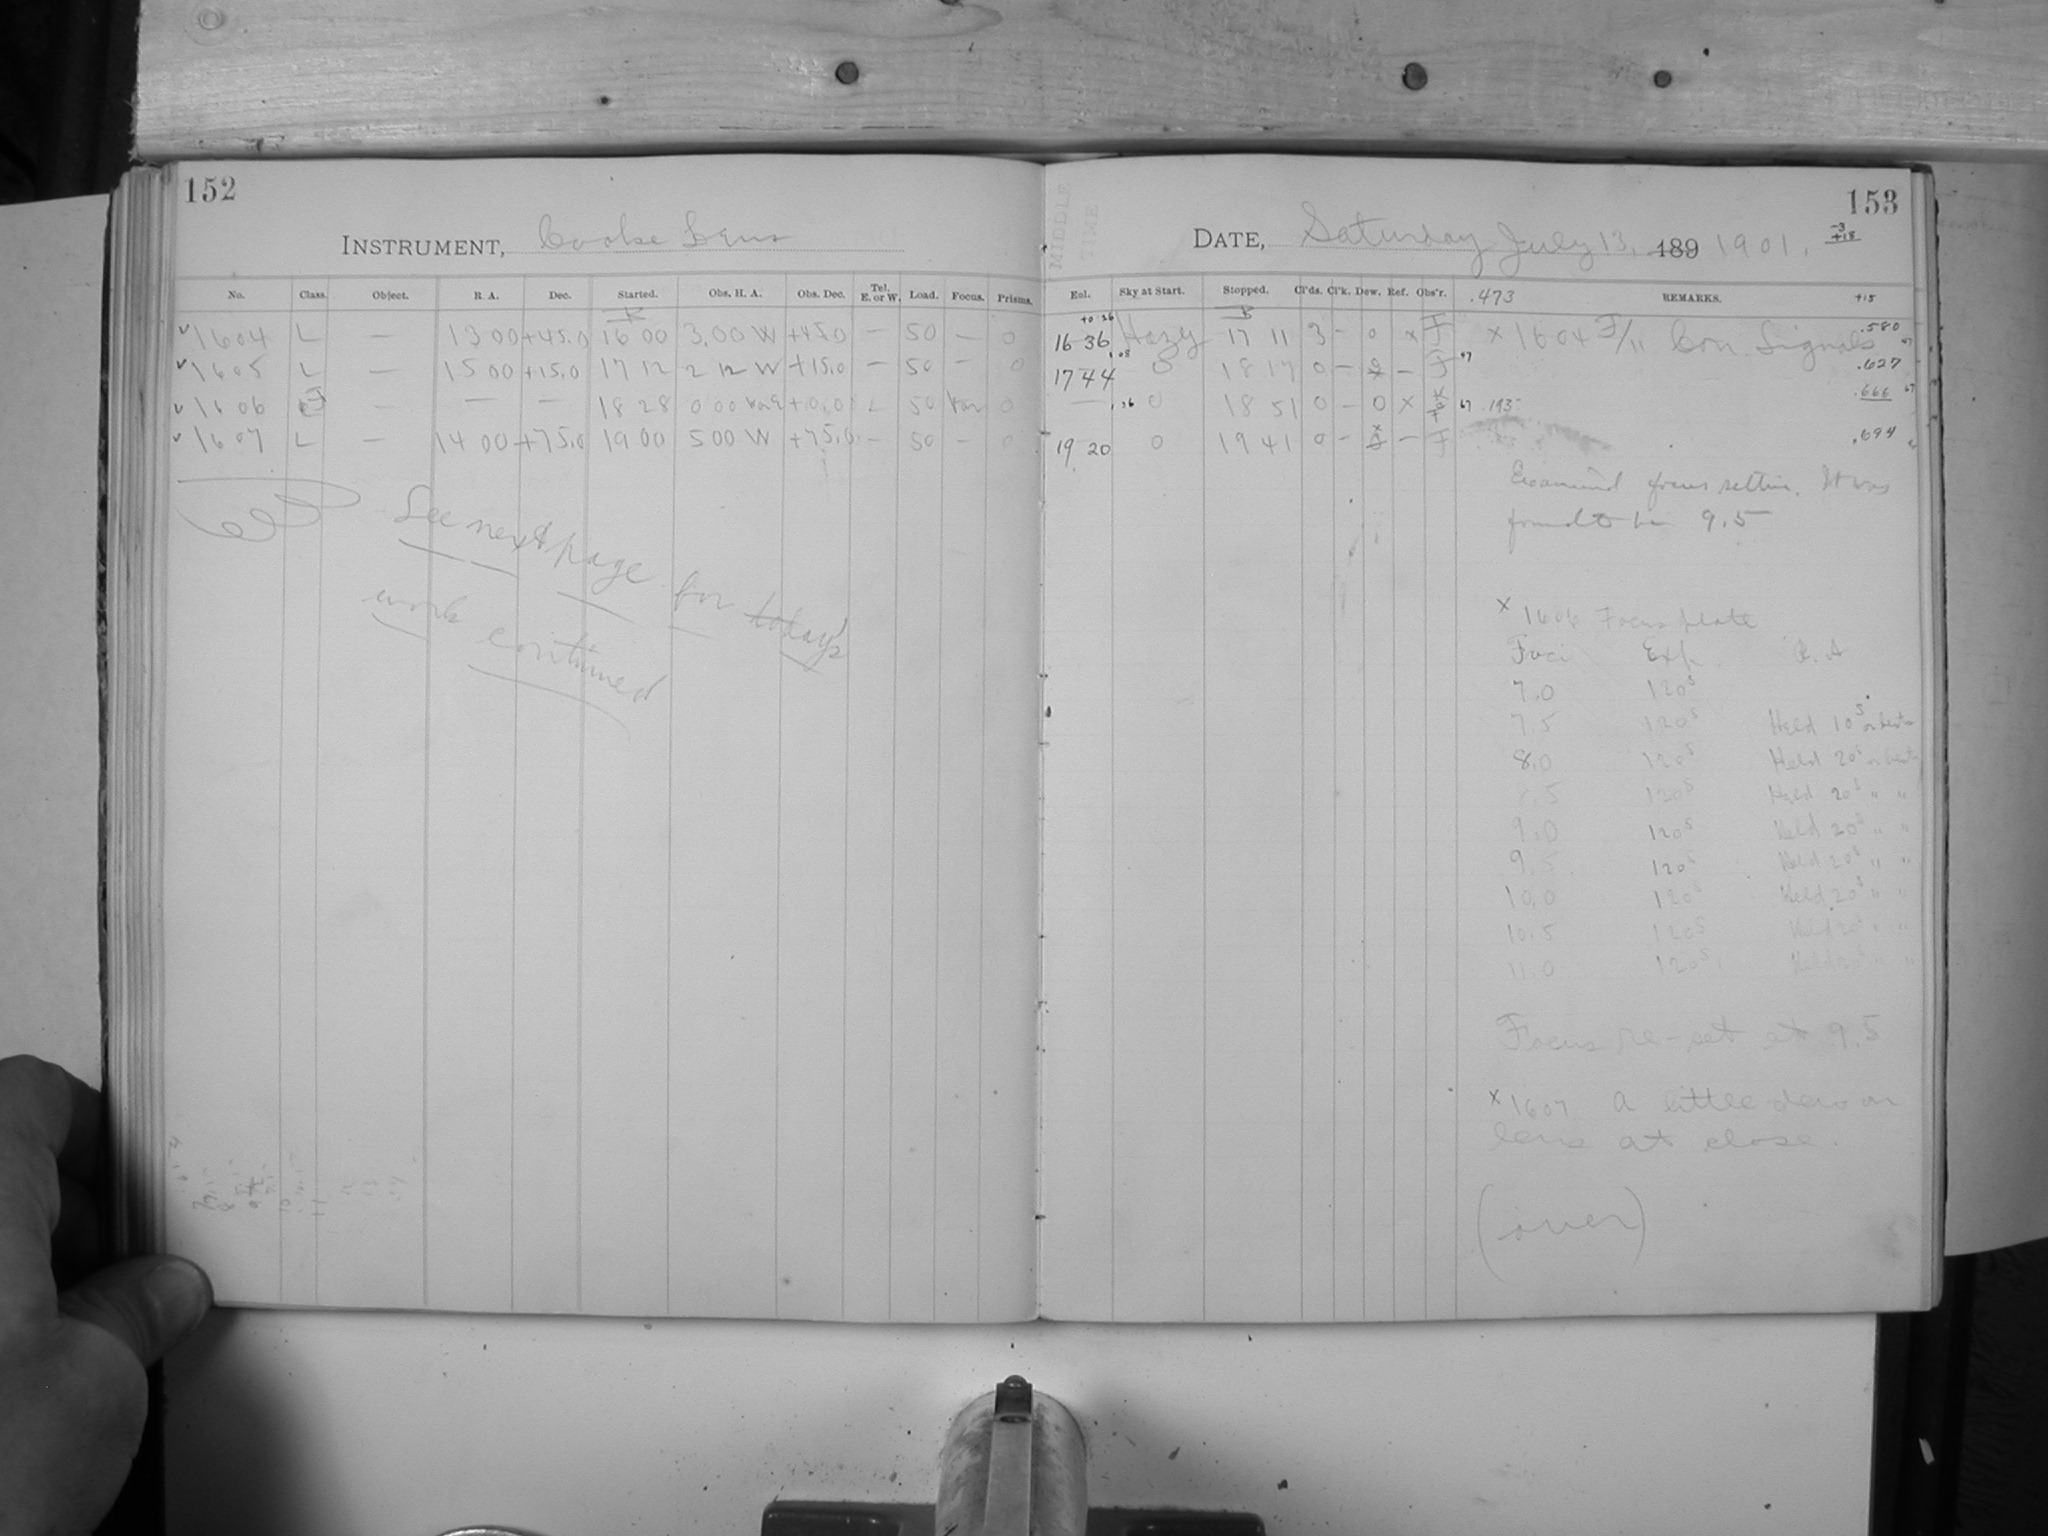 152
INSTRUMENT, Cooke Lens
No. Class. Object. R. A. Dec. Started. Obs. H. A. Obs. Dec. Tel. E. or W. Load. Focus. Prisms.
✓1604 L — 13 00 +45.0 16 00 3.00 W +45.0 — 50 — 0
✓1605 L — 15 00 +15.0 17 12 2 12 W +15.0 — 50 — 0
✓1606 — — — 18 28 0 00 +0.0 50 Var 0
✓1607 L — 14 00 +75.0 19 00 5 00 W +75.0 — 50 — 0
See next page for today's
work continued
MIDDLE
TIME
153
DATE, Saturday July 13, 189 1901.
-3
+18
Eol. Sky at Start. Stopped. Cl'ds. Cl'k. Dew. Ref. Obs'r. .473 REMARKS. +15
16 36 Hazy 17 11 3 - 0 x F x 1604 F/11 Con. Signals .580
17 44 0 18 17 0 - — F 47 .627
— 0 18 51 0 - 0 x 67 .193 .666 67
19 20 0 19 41 0 - — F .694
Examined focus setting. It was
found to be 9.5
x 1606 Focus plate
Foci Exp. R. A
7.0 120s
7.5 120s Held 10s or beats
8.0 120s Held 20s or beats
8.5 120s Held 20s " "
9.0 120s Held 20s " "
9.5 120s Held 20s " "
10.0 120s Held 20s " "
10.5 120s Held 20s " "
11.0 120s Held 20s " "
Focus re-set at 9.5
x 1607 A little dew on
lens at close.
(over)